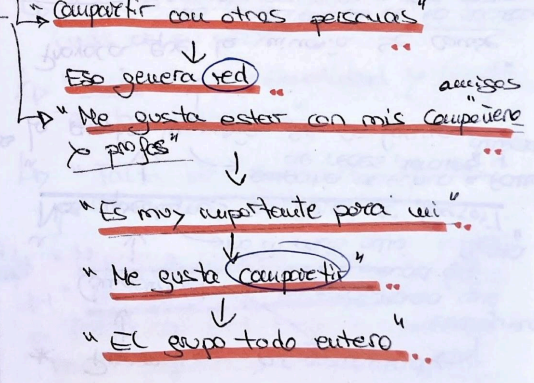 "Compartir con otras personas"
Eso genera red
amigos
"Me gusta estar con mis "compañero
y profes"
"Es muy importante para mi"
"Me gusta compartir"
"El grupo todo entero"